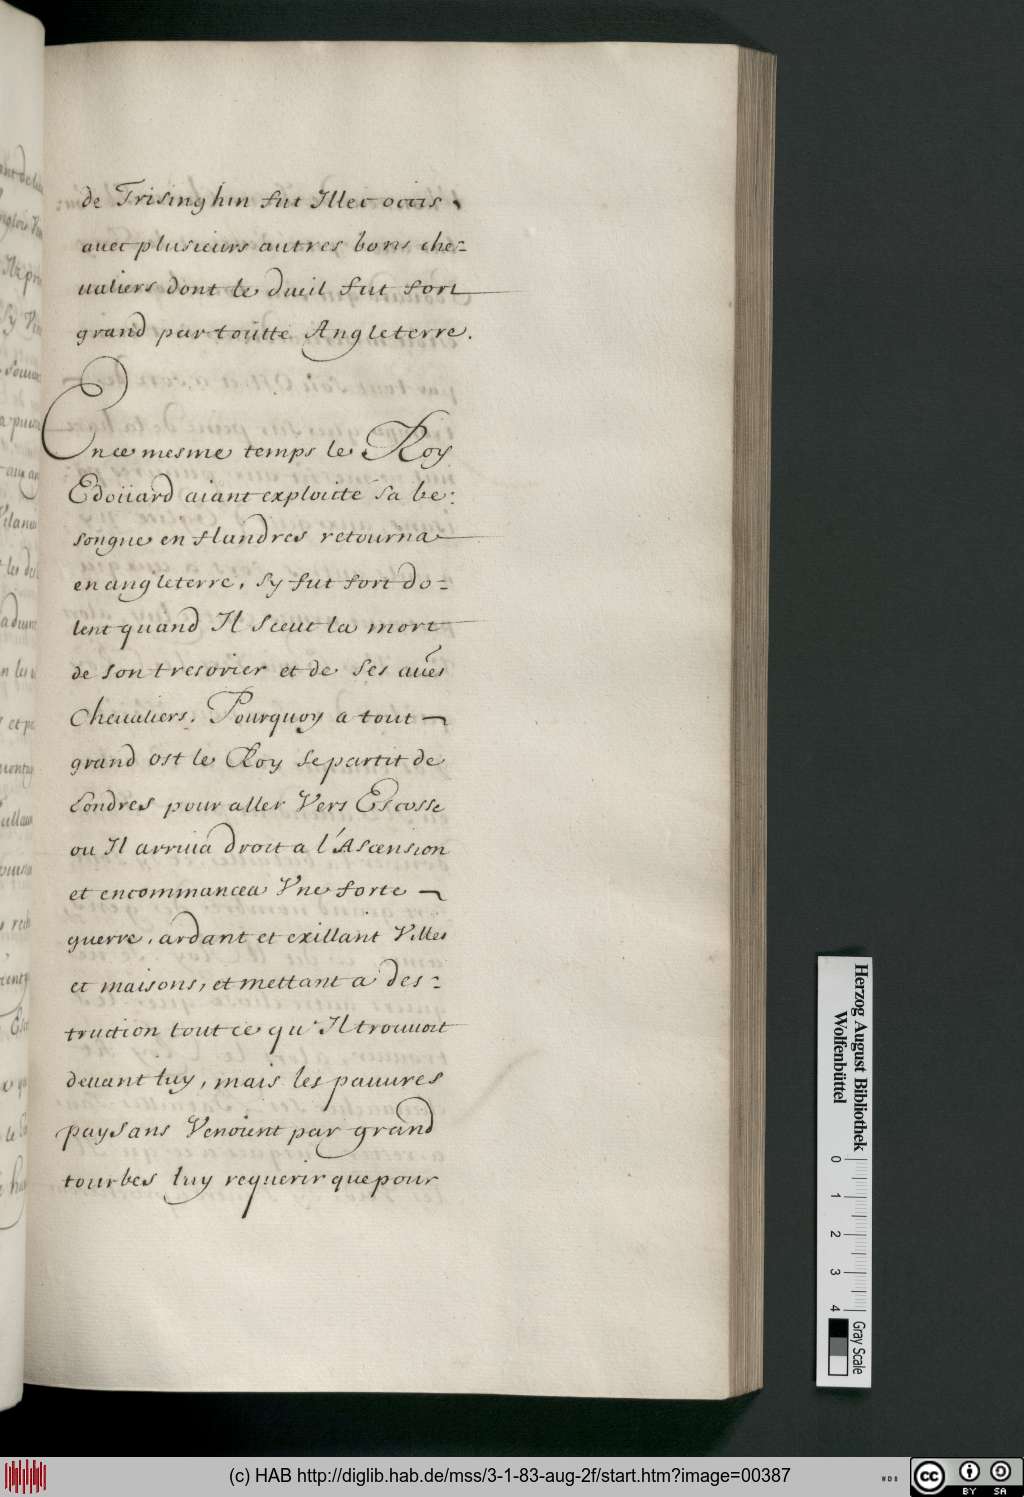 de Trisinghin fut Illec occis,
auec plusieurs autres bons che=
ualiers dont le dueil fut fort
grand par toutte Angleterre.
En ce mesme temps le Roy
Edoüard aiant exploicté sa be:
songne en flandres retourna
en angleterre, sy fut fort do=
lent quand Il sceut la mort
de son tresorier et de ses
Cheualiers. Pourquoy a tout
grand ost le Roy se partit de
Londres pour aller Vers Escosse
ou Il arriua droit a l'Ascension
et encommancea Vne forte
guerre, ardant et exillant Villes
et maisons, et mettant a des=
truction tout ce qu'Il trouuoit
deuant luy, mais les pauures
paysans Venoient par grand
tourbes luy requerir que pour
Herzog August Bibliothek
Wolfenbüttel
0 1 2 3 4
Gray Scale
(c) HAB http://diglib.hab.de/mss/3-1-83-aug-2f/start.htm?image=00387
cc BY SA